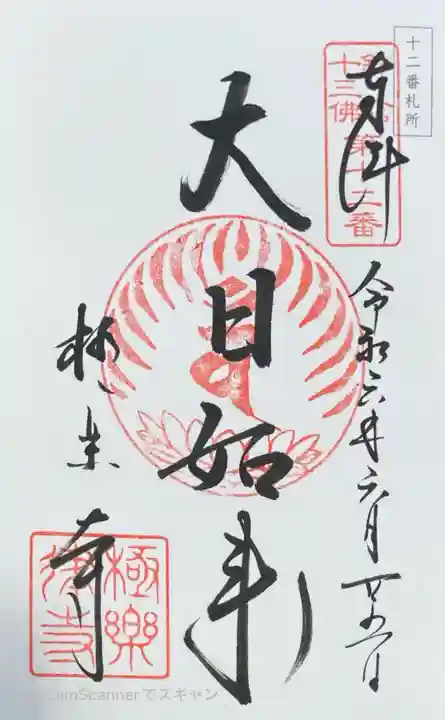 十二番札所
奉拝
鎌倉
十三佛
第十二番
令和六年六月廿六日
大日如来
極楽寺
極樂
寺
CamScannerでスキャン